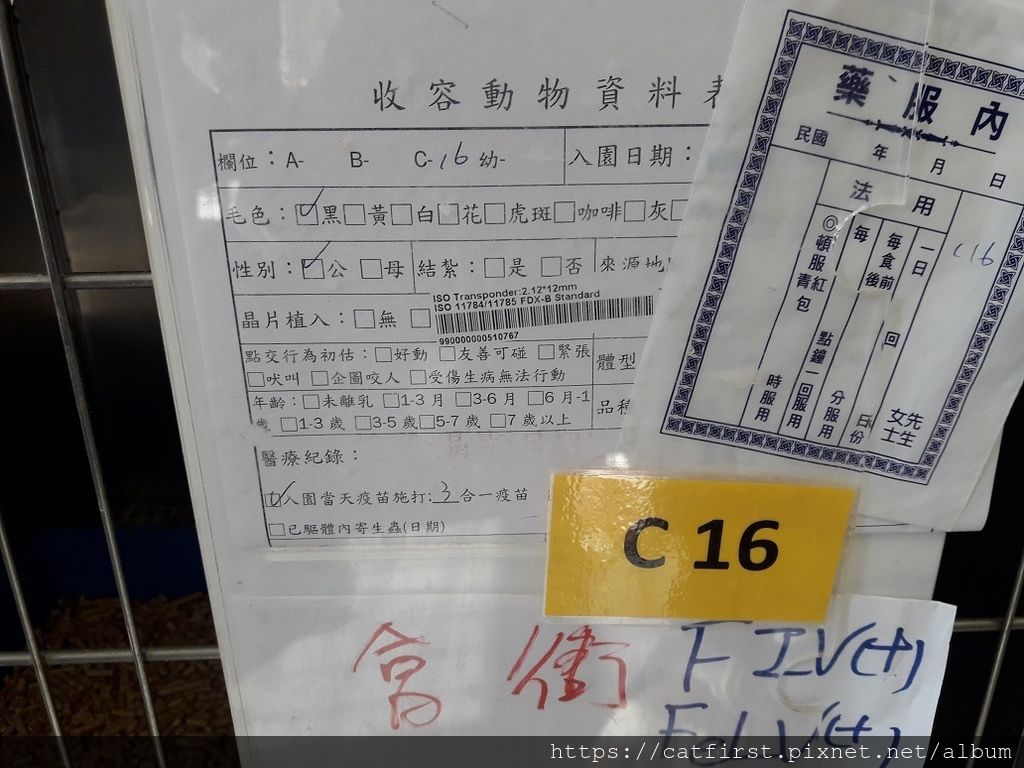 收容動物資料表
欄位：A- B- C-16 幼-
入園日期：
毛色：☑黑□黃□白□花□虎斑□咖啡□灰□
性別：☑公 □母
結紮：□是 □否
來源地
晶片植入：□無 □
ISO Transponder:2.12*12mm
ISO 11784/11785 FDX-B Standard
990000000510767
點交行為初估：□好動 □友善可碰 □緊張
□吠叫 □企圖咬人 □受傷生病無法行動
體型
年齡：□未離乳 □1-3 月 □3-6 月 □6 月-1
歲 □1-3 歲 □3-5 歲 □5-7 歲 □7 歲以上
品種
醫療紀錄：
☑入園當天疫苗施打:3合一疫苗
□已驅體內寄生蟲(日期)
藥服內
民國 年 月 日
用法
C16
一日
每食前後
回
日份
每
分服用
◎頓服紅青包
點鐘一回服用
時服用
先生
女士
C 16
FIV(+)
FeLV(+)
https://catfirst.pixnet.net/album